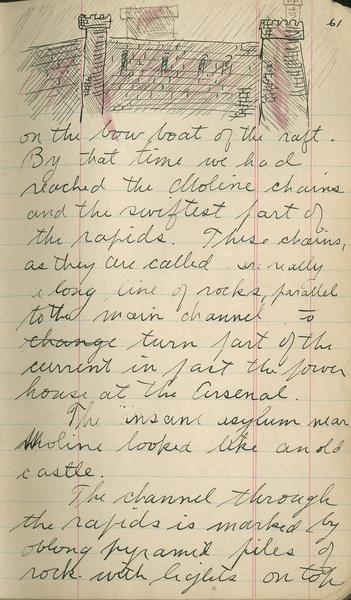 61
on the bow boat of the raft.
By that time we had
reached the Moline chains
and the swiftest part of
the rapids. These chains,
as they are called are really
a long line of rocks, parallel
to the main channel to
change turn part of the
current in past the power
house at the Arsenal.
The insane asylum near
Moline looked like an old
castle.
The channel through
the rapids is marked by
oblong pyramid piles of
rock with lights on top